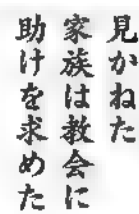 見かねた
家族は教会に
助けを求めた